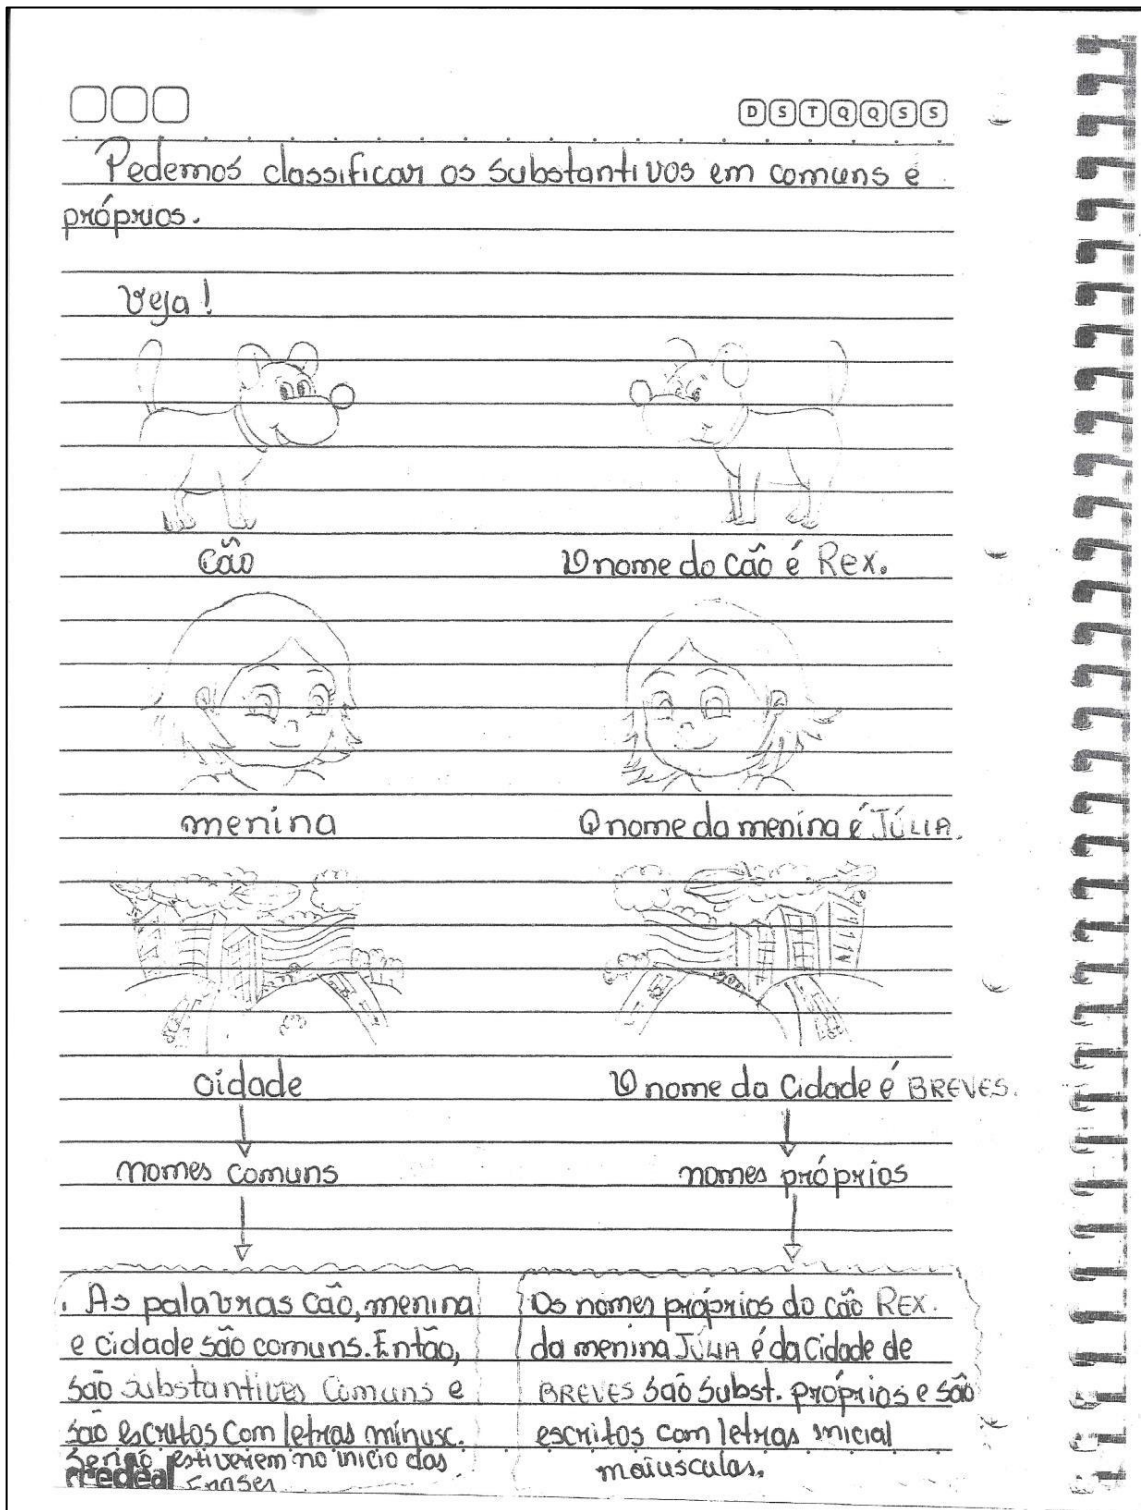 D S T Q Q S S
Podemos classificar os substantivos em comuns e
próprios.
Veja!
cão O nome do cão é Rex.
menina O nome da menina é JÚLIA.
cidade O nome da Cidade é BREVES.
nomes comuns nomes próprios
. As palavras cão, menina
e cidade são comuns. Então,
são substantivos Comuns e
são escritos com letras minusc.
se não estiverem no início das
frases
Os nomes próprios do cão REX.
da menina JÚLIA é da Cidade de
BREVES são subst. próprios e são
escritos com letras inicial
maiusculas.
credeal